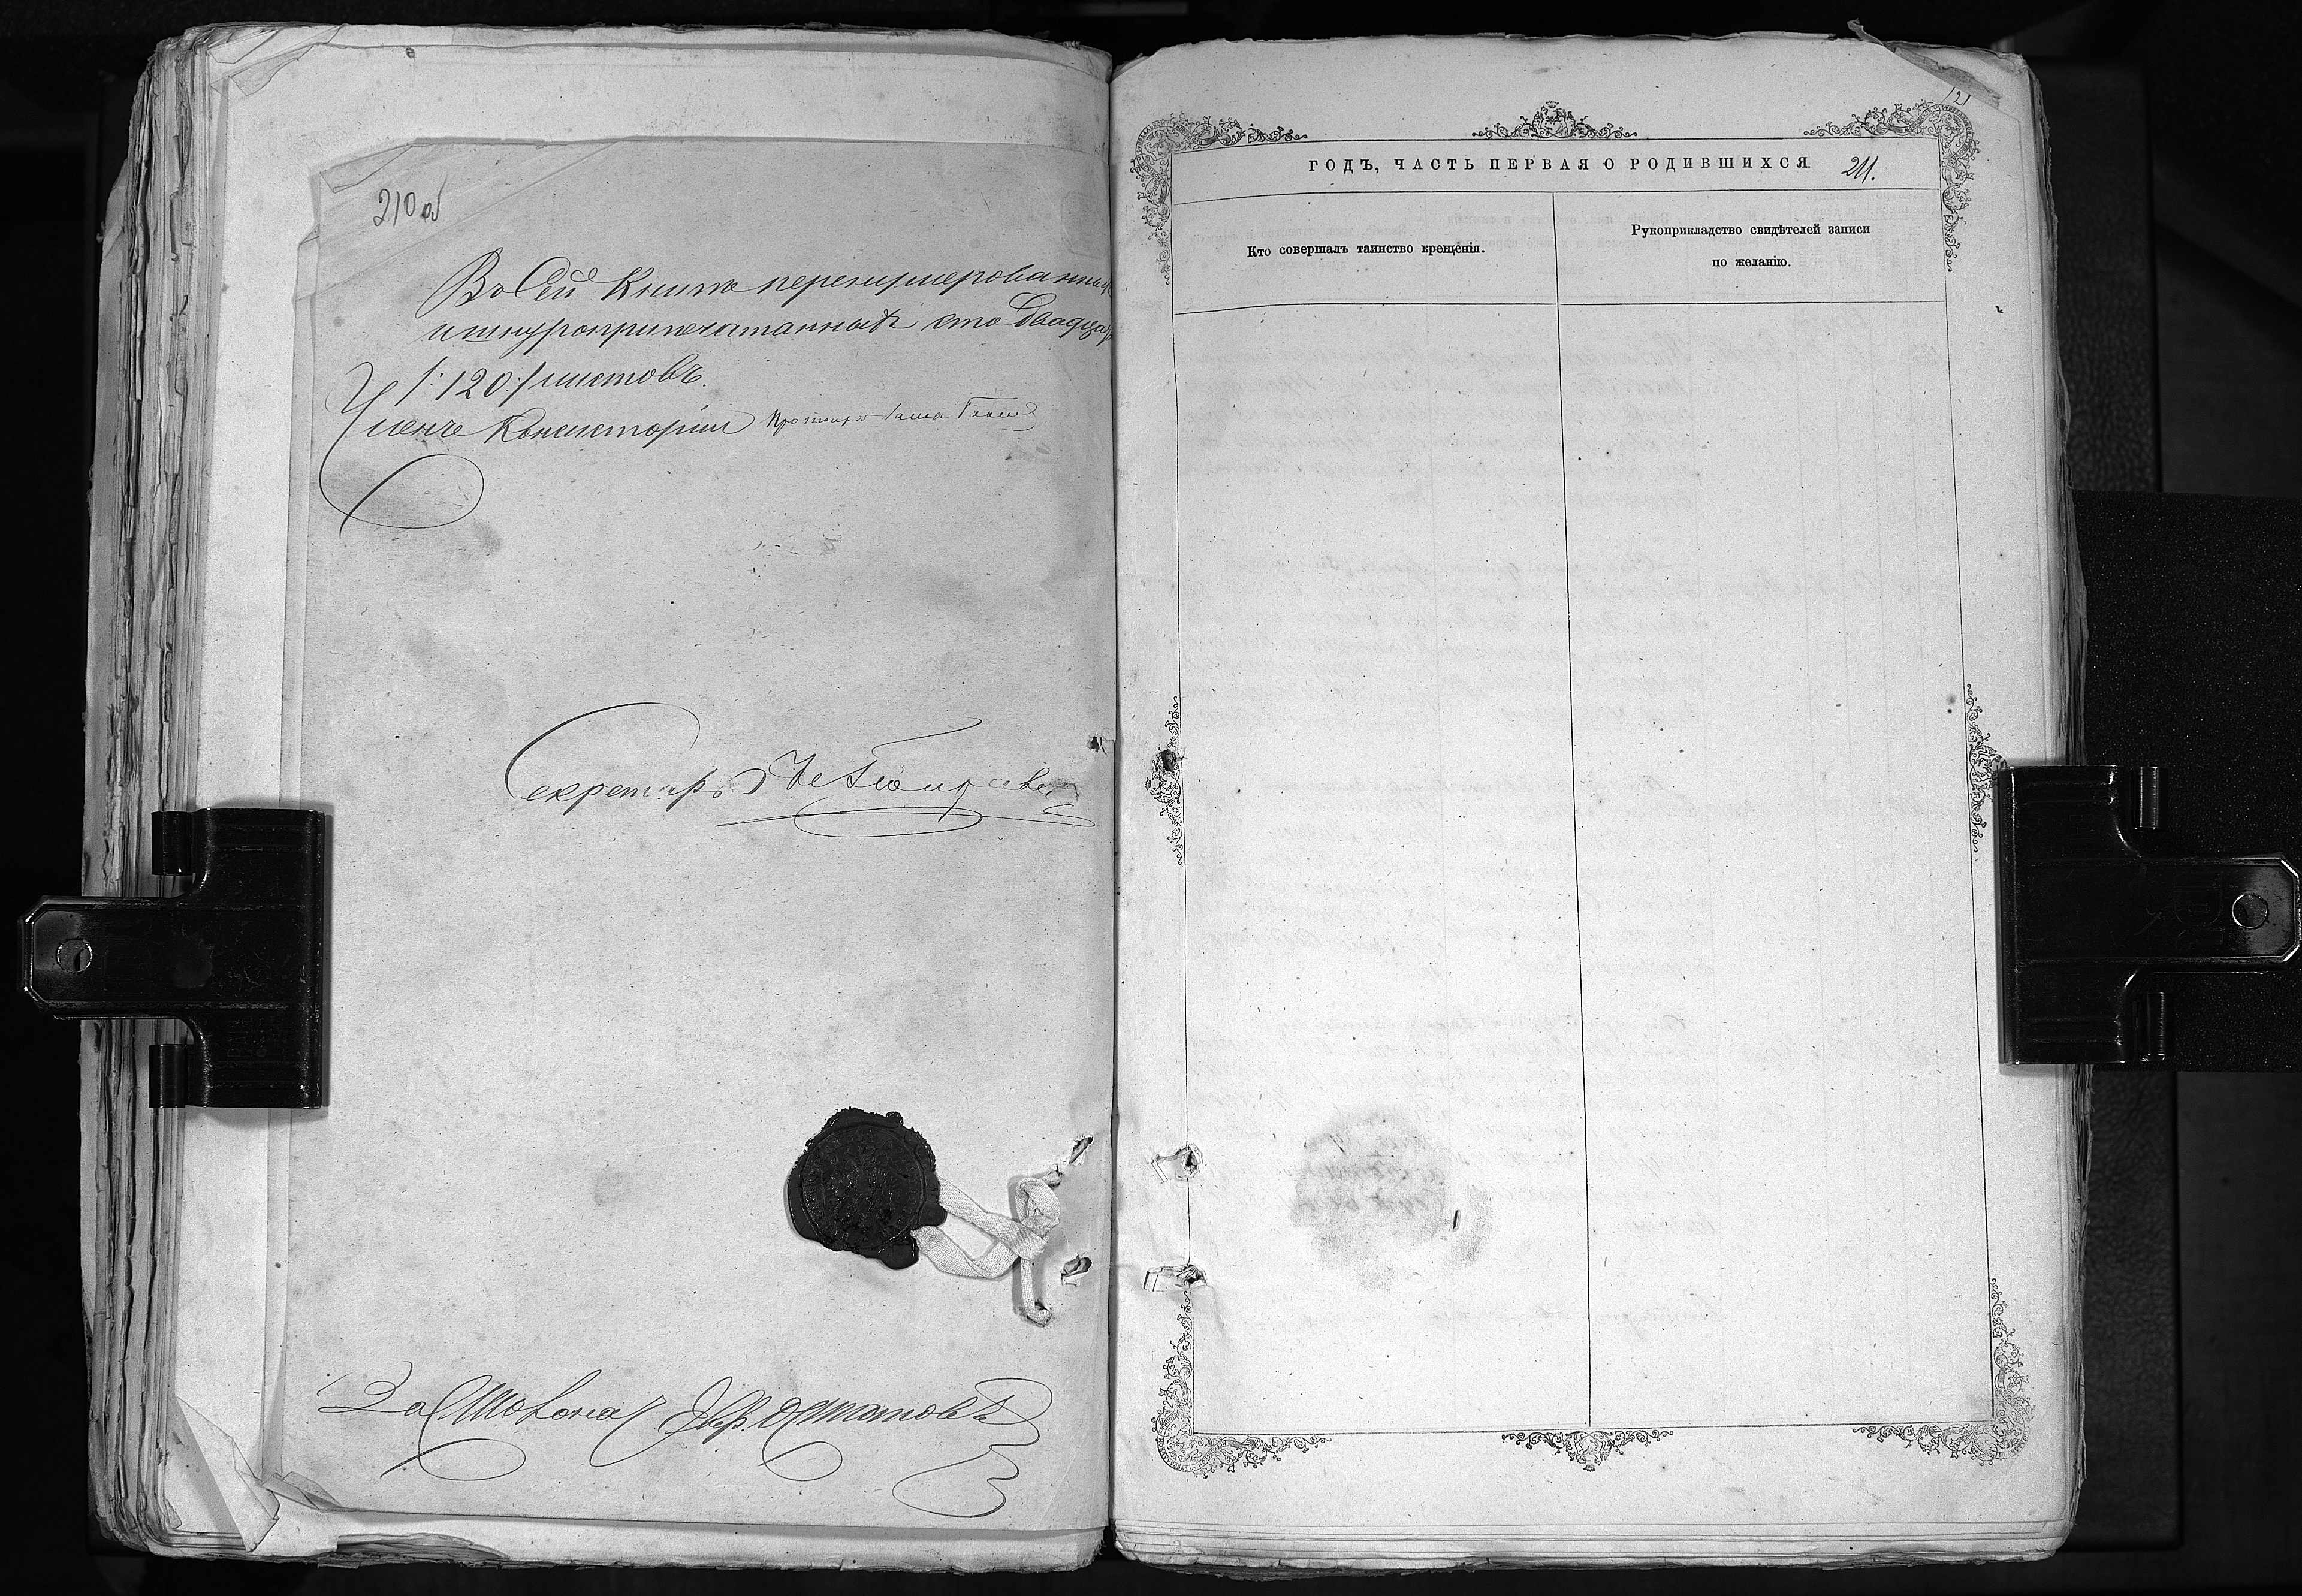 210 об
Въ сей книгѣ перенумерованныхъ
и шнуроприпечатанныхъ сто двадцать
/:120:/ листовъ.
Членъ Консисторіи Протоіерей
Секретарь
За Столонач.
121
ГОДЪ, ЧАСТЬ ПЕРВАЯ О РОДИВШИХСЯ. 211.
Кто совершалъ таинство крещенія.
Рукоприкладство свидѣтелей записи
по желанію.